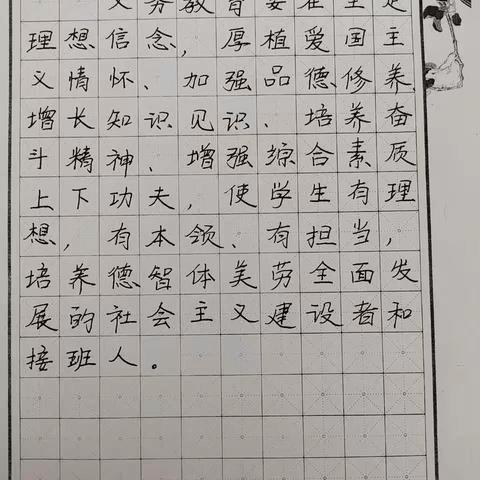 义务教育要在坚定
理想信念，厚植爱国主
义情怀、加强品德修养、
增长知识见识、培养奋
斗精神、增强综合素质
上下功夫，使学生有理
想，有本领、有担当，
培养德智体美劳全面发
展的社会主义建设者和
接班人。